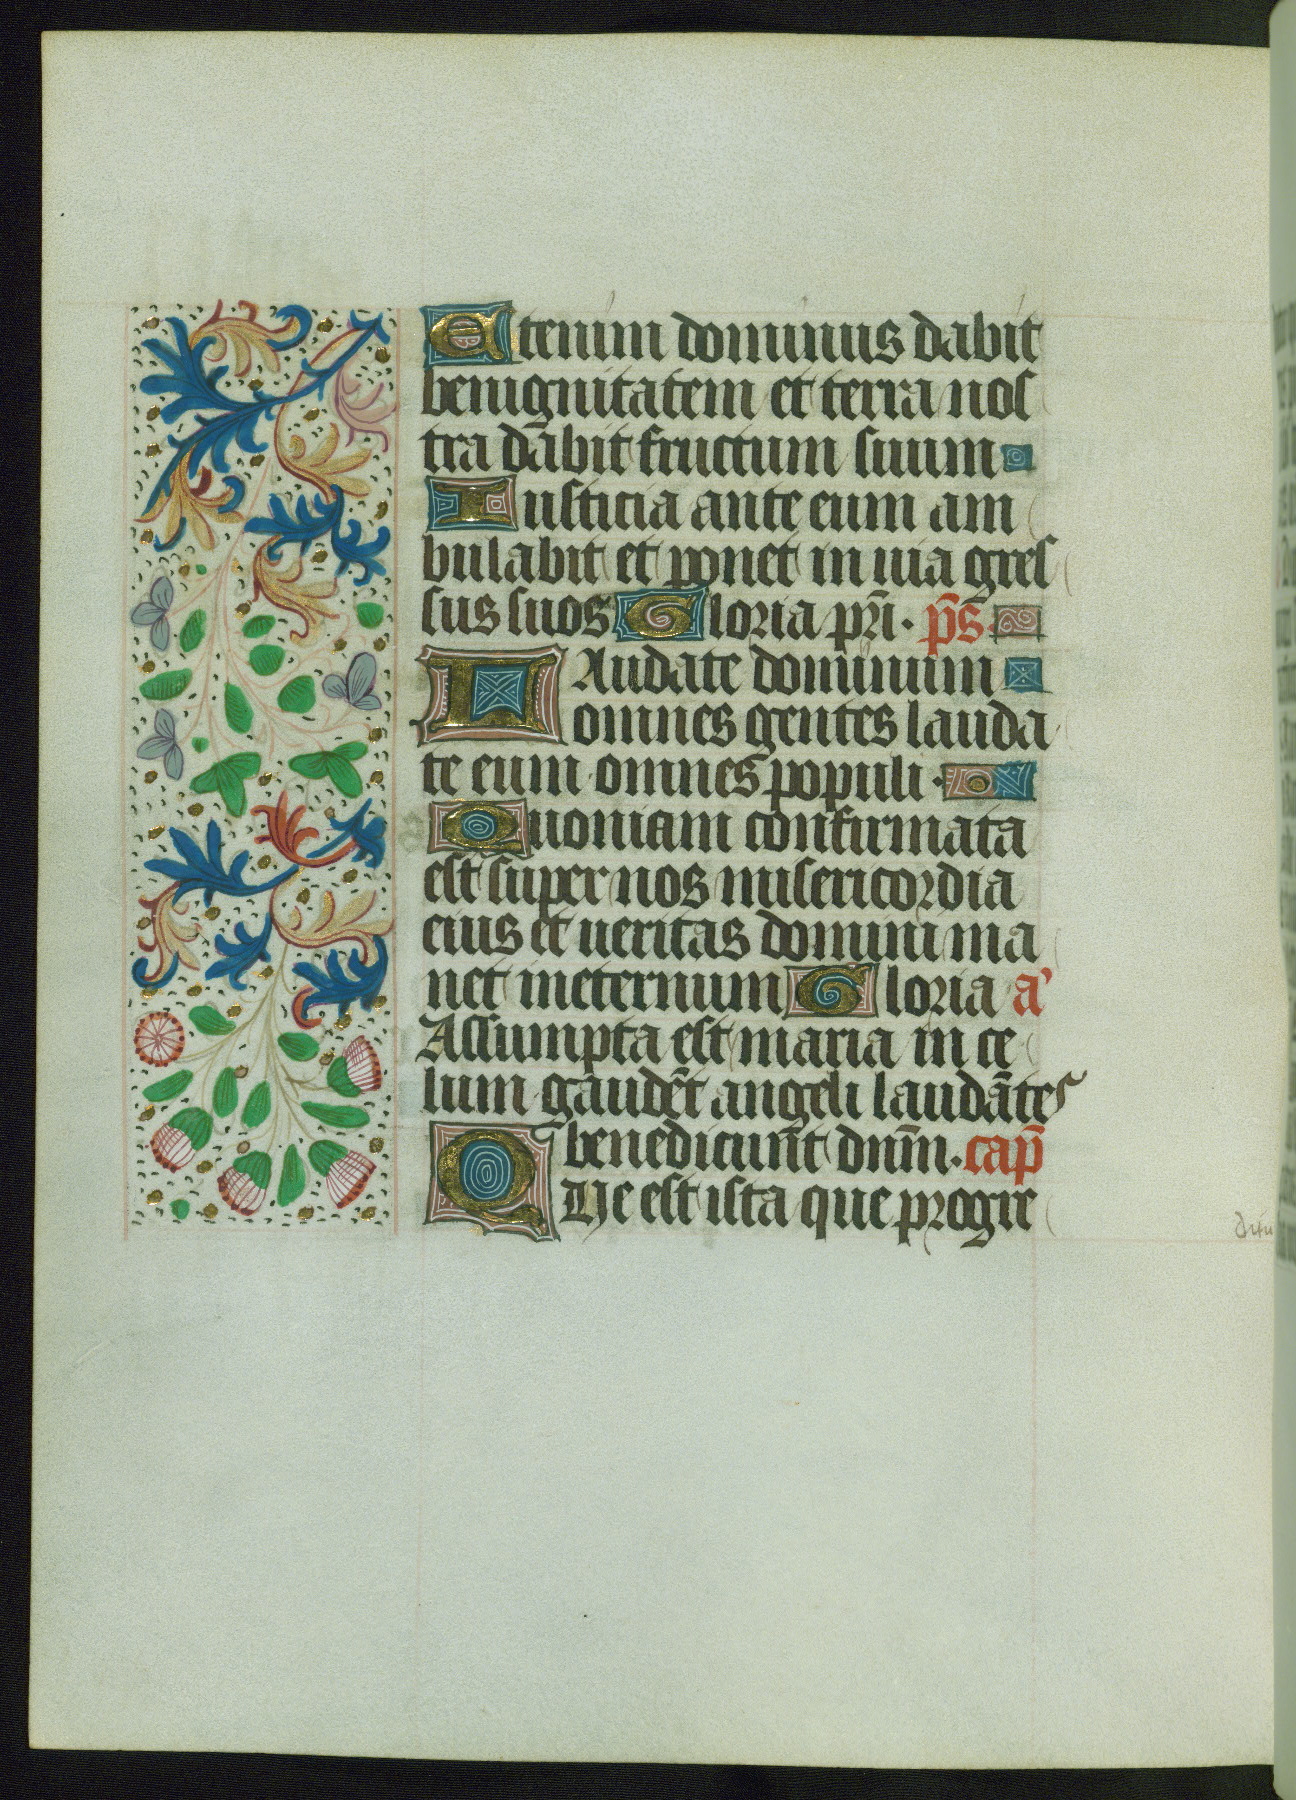 Etenim dominus dabit
benignitatem et terra nos
tra dabit fructum suum
Iusticia ante eum am
bulabit et ponet in uia gres
sus suos Gloria pr̄i · p̄s
LAudate dominum
omnes gentes lauda
te eum omnes populi ·
Quoniam confirmata
est super nos misericordia
eius et ueritas domini ma
net ineternum Gloria a'
Assumpta est maria in ce
lum gaudēt angeli laudātes
benedicunt dn̄m · cap̄
QUe est ista que progre